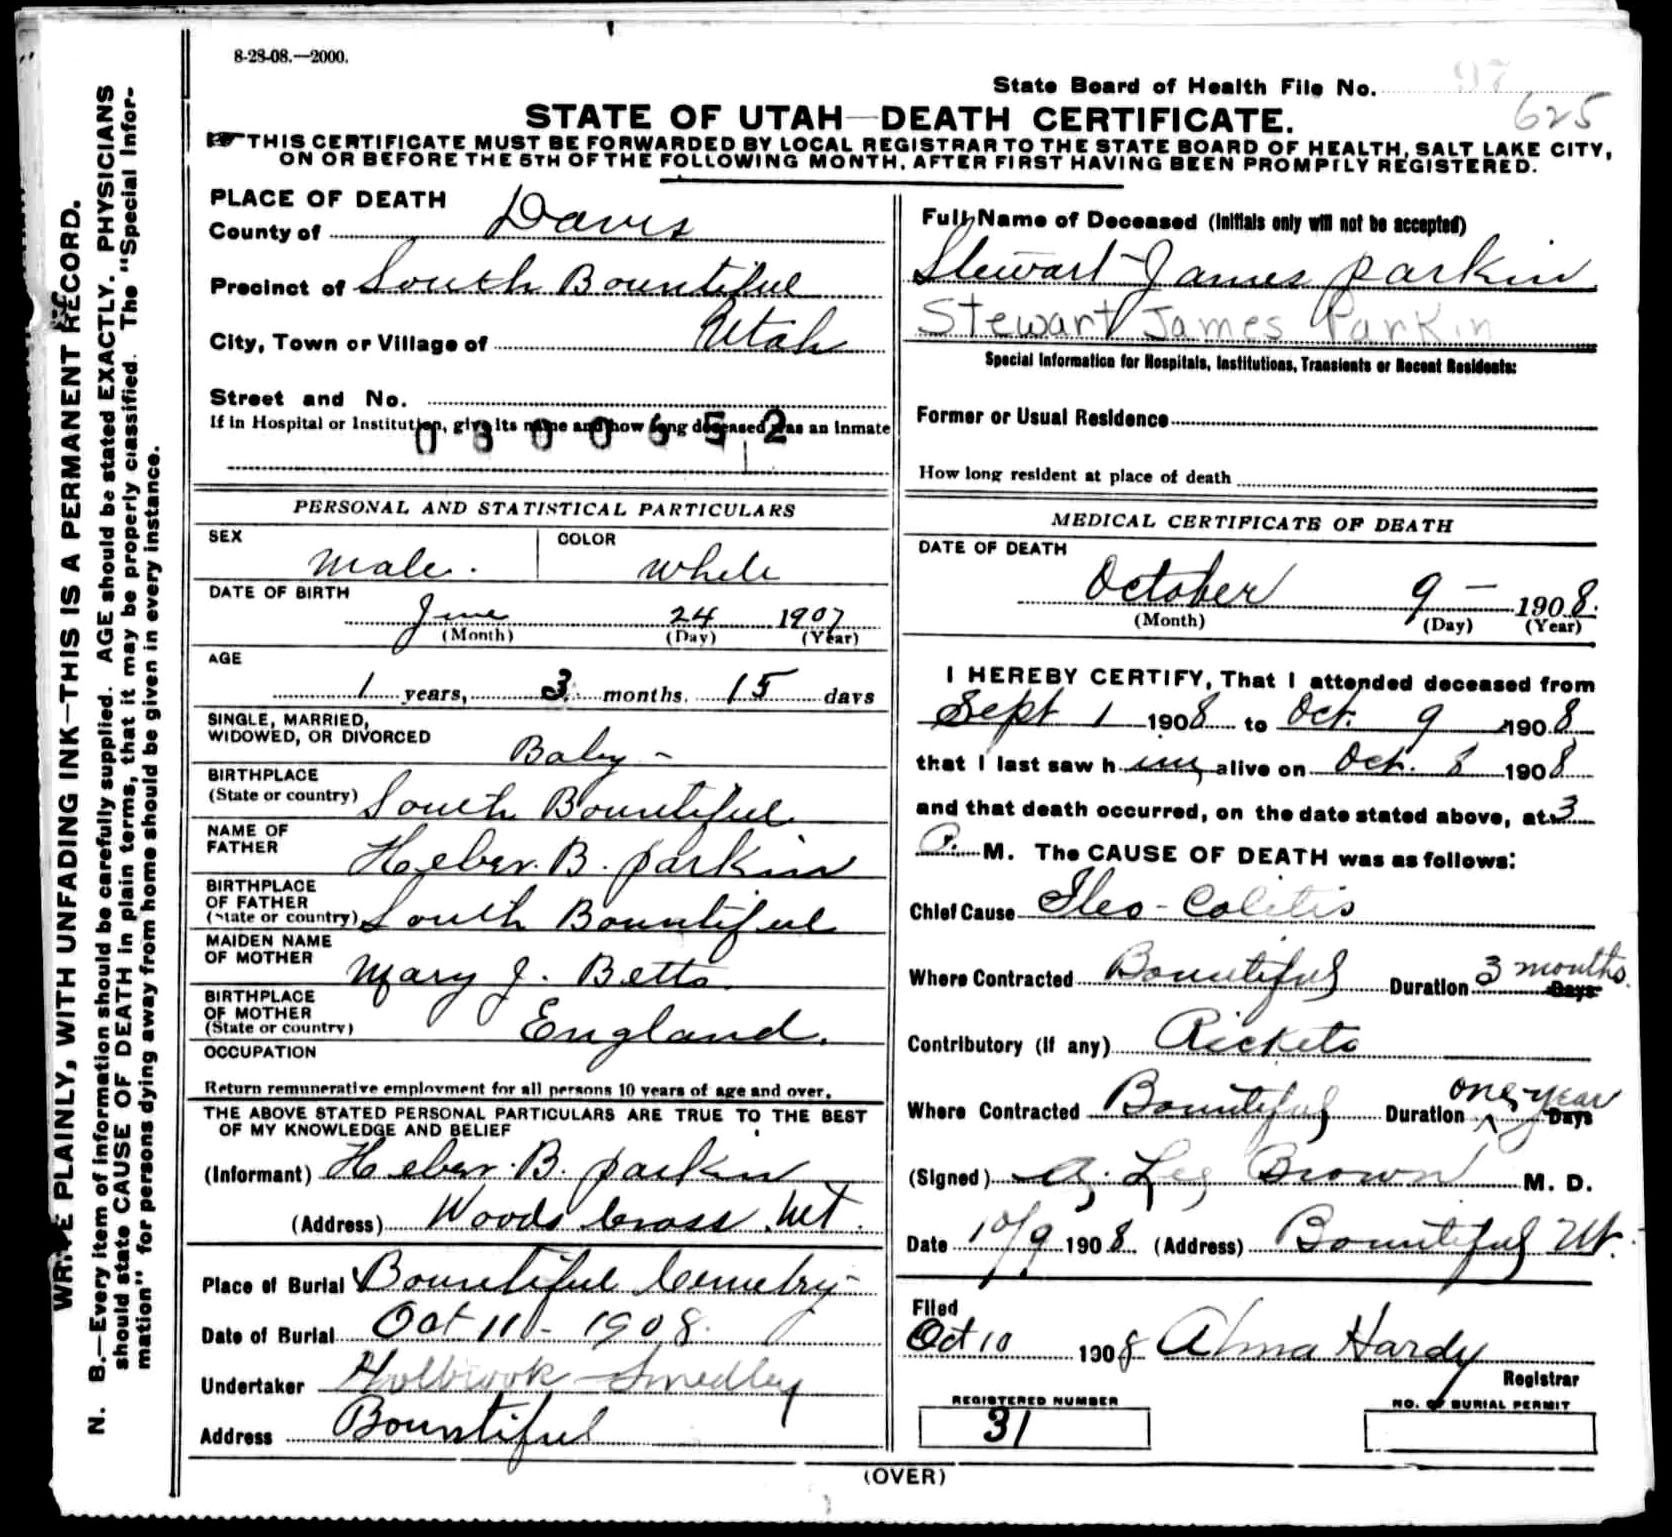 8-28-08.—2000.
State Board of Health File No. 97
625
STATE OF UTAH—DEATH CERTIFICATE.
THIS CERTIFICATE MUST BE FORWARDED BY LOCAL REGISTRAR TO THE STATE BOARD OF HEALTH, SALT LAKE CITY,
ON OR BEFORE THE 5TH OF THE FOLLOWING MONTH, AFTER FIRST HAVING BEEN PROMPTLY REGISTERED.
WRITE PLAINLY, WITH UNFADING INK—THIS IS A PERMANENT RECORD.
N. B.—Every item of information should be carefully supplied. AGE should be stated EXACTLY. PHYSICIANS
should state CAUSE OF DEATH in plain terms, that it may be properly classified. The "Special Infor-
mation" for persons dying away from home should be given in every instance.
PLACE OF DEATH
County of Davis
Precinct of South Bountiful
City, Town or Village of Utah
Street and No.
If in Hospital or Institution, give its name and how long deceased was an Inmate
0300652
PERSONAL AND STATISTICAL PARTICULARS
SEX male. COLOR white
DATE OF BIRTH
June 24 1907
(Month) (Day) (Year)
AGE
1 years, 3 months. 15 days
SINGLE, MARRIED,
WIDOWED, OR DIVORCED Baby -
BIRTHPLACE
(State or country) South Bountiful
NAME OF
FATHER Heber. B. Parkin
BIRTHPLACE
OF FATHER
(State or country) South Bountiful
MAIDEN NAME
OF MOTHER Mary J. Betts.
BIRTHPLACE
OF MOTHER
(State or country) England.
OCCUPATION
Return remunerative employment for all persons 10 years of age and over.
THE ABOVE STATED PERSONAL PARTICULARS ARE TRUE TO THE BEST
OF MY KNOWLEDGE AND BELIEF
(Informant) Heber. B. Parkin
(Address) Woods Cross Ut.
Place of Burial Bountiful Cemetry
Date of Burial Oct 11 - 1908.
Undertaker Holbrook Smedley
Address Bountiful
Full Name of Deceased (Initials only will not be accepted)
Stewart James Parkin
Stewart James Parkin
Special Information for Hospitals, Institutions, Transients or Recent Residents:
Former or Usual Residence
How long resident at place of death
MEDICAL CERTIFICATE OF DEATH
DATE OF DEATH
October 9 - 1908.
(Month) (Day) (Year)
I HEREBY CERTIFY, That I attended deceased from
Sept 1 1908 to Oct. 9 1908
that I last saw h im alive on Oct. 8 1908
and that death occurred, on the date stated above, at 3
P. M. The CAUSE OF DEATH was as follows:
Chief Cause Ileo-Colitis
Where Contracted Bountiful Duration 3 months. Days
Contributory (if any) Rickets
Where Contracted Bountiful Duration one year Days
(Signed) Lee Brown M. D.
Date 10/9 1908. (Address) Bountiful Ut.
Filed
Oct 10 1908 Alma Hardy
Registrar
REGISTERED NUMBER
31
NO. OF BURIAL PERMIT
(OVER)